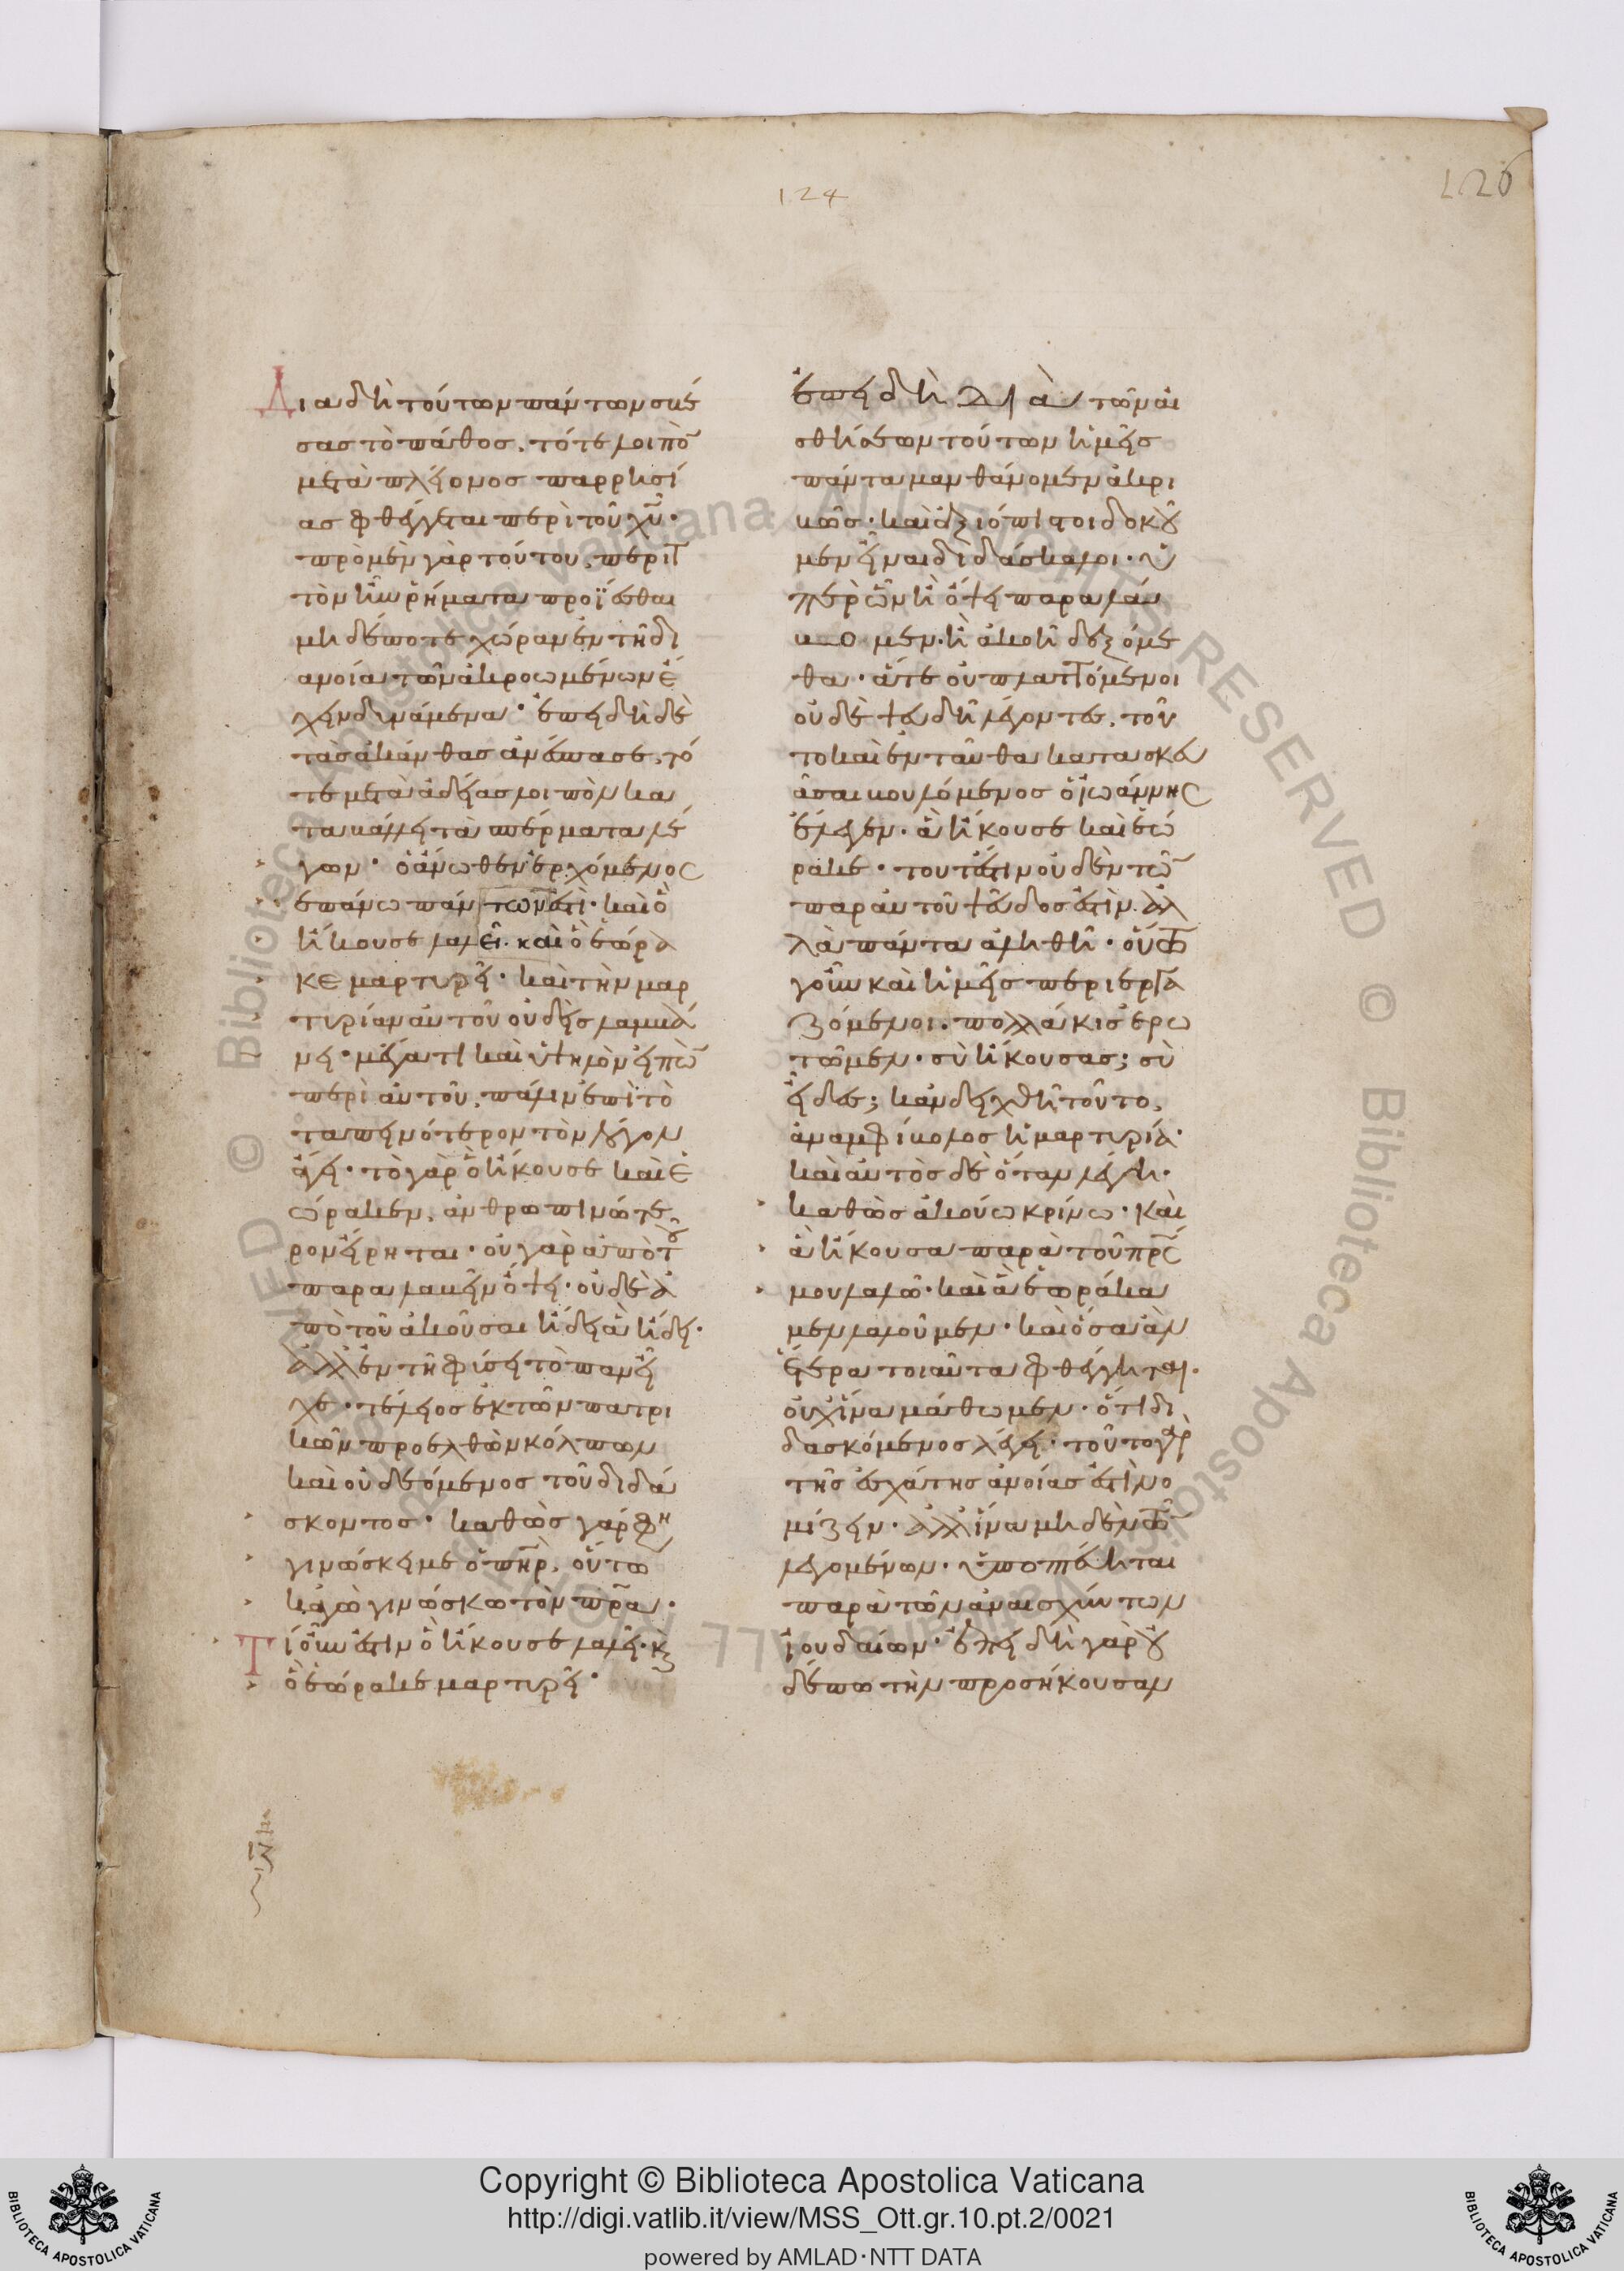 124
126
Διαδὴ τούτων πάντων σβέ
σας τὸ πάθος. τότε λοιπὸ̅
μετὰ πλείονος παρρησί
ας φθέγγεται περὶ τοῦ χῦ·
πρὸ μὲν γὰρ τούτου, περιτ
τὸν ἦν ῥήματα προΐεσθαι
μηδέποτε χώραν ἐν τῆ δι
ανοία τῶν ἀκροωμένων ἕ
ξειν δυνάμενα· ἐπειδὴ δὲ
τὰς ἀκάνθας ἀνέσπασε, τό
τε μετὰ ἀδείας λοιπὸν κα
ταβάλλει τὰ σπέρματα λέ
γων· ὁ ἄνωθεν ἐρχόμενος
ἐπάνω πάντων ἐστὶ· καὶ ὃ
ἤκουσε λαλεῖ. καὶ ὃ ἑώρα
κε μαρτυρεῖ· καὶ τὴν μαρ
τυρίαν αὐτοῦ οὐδεὶς λαμβά
νει· μέγα τι καὶ ὑψηλὸν εἰπὼ̅
περὶ αὐτοῦ, πάλιν ἐπὶ τὸ
ταπεινότερον τὸν λόγον
ἄγει· τὸ γὰρ ὃ ἤκουσε καὶ ἑ
ώρακεν, ἀνθρωπινώτε
ρον εἴρηται· οὐ γὰρ ἀπὸ τοῦ
παραλαβεῖν ὄψει· οὐδὲ ἀ
πὸ τοῦ ἀκοῦσαι ἤδει ἃ ἤδει·
ἀλλ' ἐν τῆ φύσει τὸ πᾶν εἶ
χε· τέλειος ἐκ τῶν πατρι
κῶν προελθὼν κόλπων
καὶ οὐ δεόμενος τοῦ διδά
σκοντος· καθὼς γάρ φη
γινώσκει με ὁ πηρ, οὕτω
κἀγὼ γινώσκω τὸν πρα·
Τί οὖν ἐστιν ὃ ἤκουσε λαλεῖ· κ
ὃ ἑώρακε μαρτυρεῖ·
ἐπειδὴ διὰ τῶν αἰ
σθήσεων τούτων ἡμεῖς
πάντα μανθάνομεν ἀκρι
βῶς· καὶ ἀξιόπιστοι δοκοῦ
μεν εἶναι διδάσκαλοι· ὑ
περ ὧν ἢ ὄψει παραλάβ
βομεν· ἢ ἀκοῆ δεξόμε
θα· ἅτε οὐ πλαττόμενοι
οὐδὲ ψευδῆ λέγοντες. τοῦ
το καὶ ἐνταῦθα κατασκευ
άσαι βουλόμενος ὁ ἰωάννης
ἔλεγεν· ἃ ἤκουσε καὶ ἑώ
ρακε· τουτέστιν οὐδὲν τῶ̅
παρ' αὐτοῦ ψεῦδος ἐστὶν. ἀλ
λὰ πάντα ἀληθῆ· οὕτω
γοῦν καὶ ἡμεῖς περιεργα
ζόμενοι. πολλάκις ἐρω
τῶμεν· σὺ ἤκουσας; σὺ
εἶδες; κἂν δειχθῆ τοῦτο,
ἀναμφίβολος ἡ μαρτυρία·
καὶ αὐτὸς δὲ ὅταν λέγη·
καθὼς ἀκούω κρίνω· καὶ
ἃ ἤκουσα παρὰ τοῦ πρς
μου λαλῶ· καὶ ἃ ἑωράκα
μεν λαλοῦμεν· καὶ ὅσα ἂν
ἕτερα τοιαῦτα φθέγγηται·
οὐχ ἵνα μάθωμεν· ὅτι δι
δασκόμενος λέγει· τοῦτο γὰρ
τῆς ἐσχάτης ἀνοίας ἐστὶ νο
μίζειν· ἀλλ' ἵνα μηδὲν τῶ̅
λεγομένων· ὑποπτεύηται
παρὰ τῶν ἀναισχύντων
ἰουδαίων· ἐπειδὴ γὰρ οὐ
δέπω τὴν προσήκουσαν
Copyright © Biblioteca Apostolica Vaticana
http://digi.vatlib.it/view/MSS_Ott.gr.10.pt.2/0021
powered by AMLAD·NTT DATA